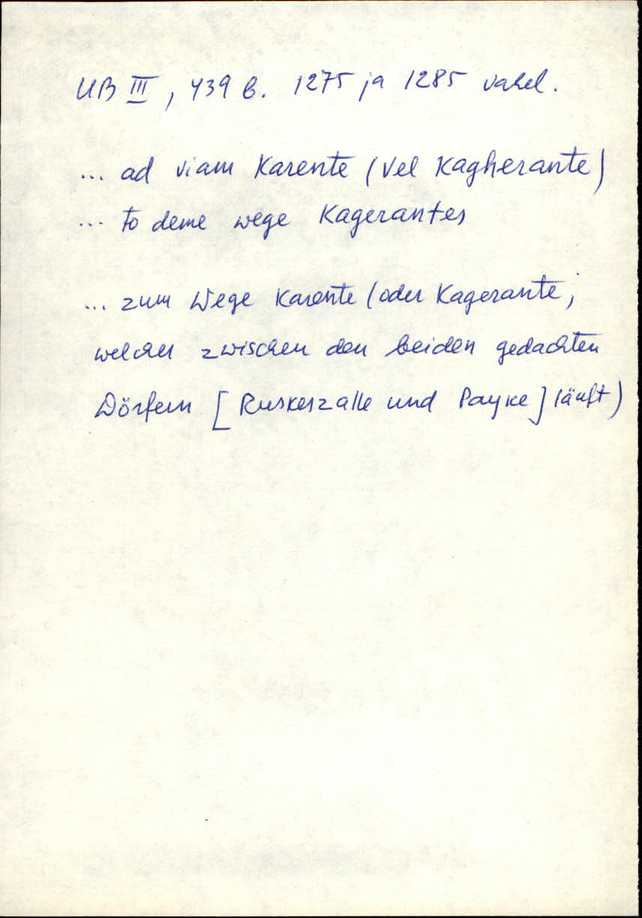 UB III, 439 b. 1275 ja 1285 vahel.
... ad viam Karente (vel Kagherante)
... to deme wege Kagerantes
... zum Wege Karente (oder Kagerante,
welcher zwischen den beiden gedachten
Dörfern [Ruskeszalle und Payke] läuft)